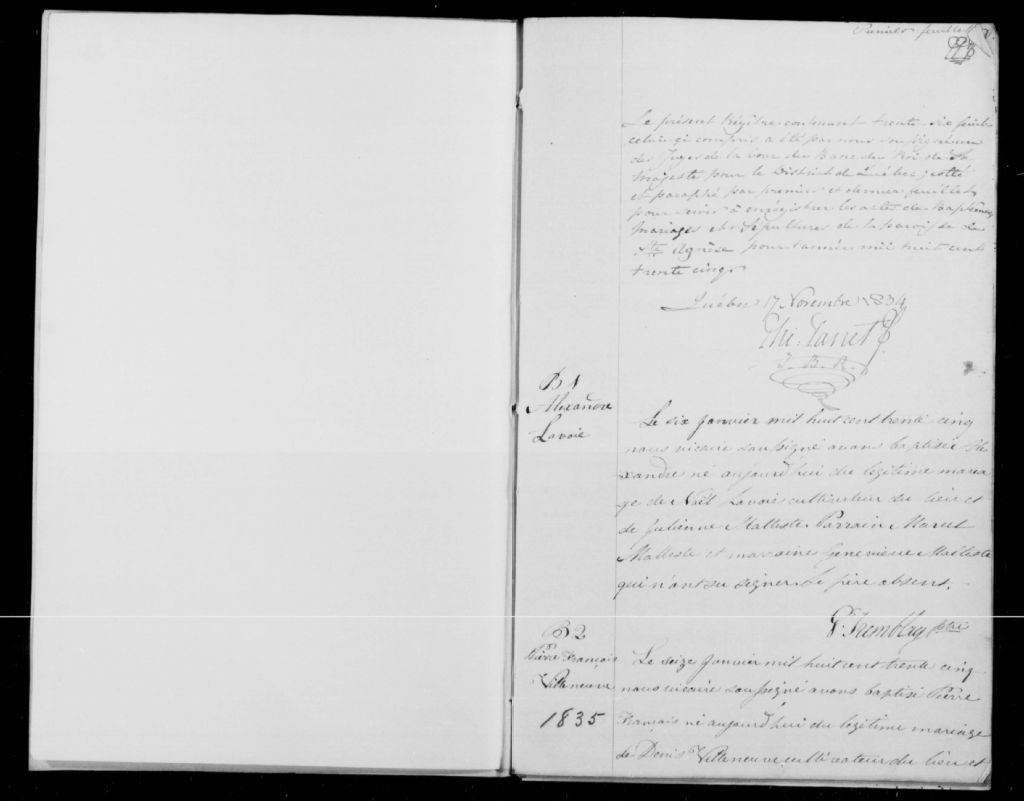 Premier feuillet
Le présent Régitre contenant trente six feuil
celui-ci compris a été par nous soussigné un
des Juges de la Cour du Banc du Roi de Sa
Majesté pour le District de Québec, cotté
et paraphé par premier et dernier feuillet
pour servir à enrégistrer les actes de Baptêmes
Mariages et Sépultures de la paroisse de
Ste Agnèse pour l'année mil huit cent
trente cinq.
Québec 17 Novembre 1834
J. B. R.
B 1
Alexandre
Lavoie
Le six Janvier mil huit cent trente cinq
nous vicaire soussigné avons baptisé Ale
xandre né aujourd'hui du légitime maria
ge de Noël Lavoie cultivateur du lieu et
de Julienne Malteste. Parrain Marcel
Malteste et marraine Genevieve Malteste
qui n'ont su signer. Le père absent.
G. Tremblay ptre
B 2
Pierre François
Villeneuve
1835
Le seize Janvier mil huit cent trente cinq
nous vicaire soussigné avons baptisé Pierre
François né aujourd'hui du légitime mariage
de Denis Villeneuve cultivateur du lieu et